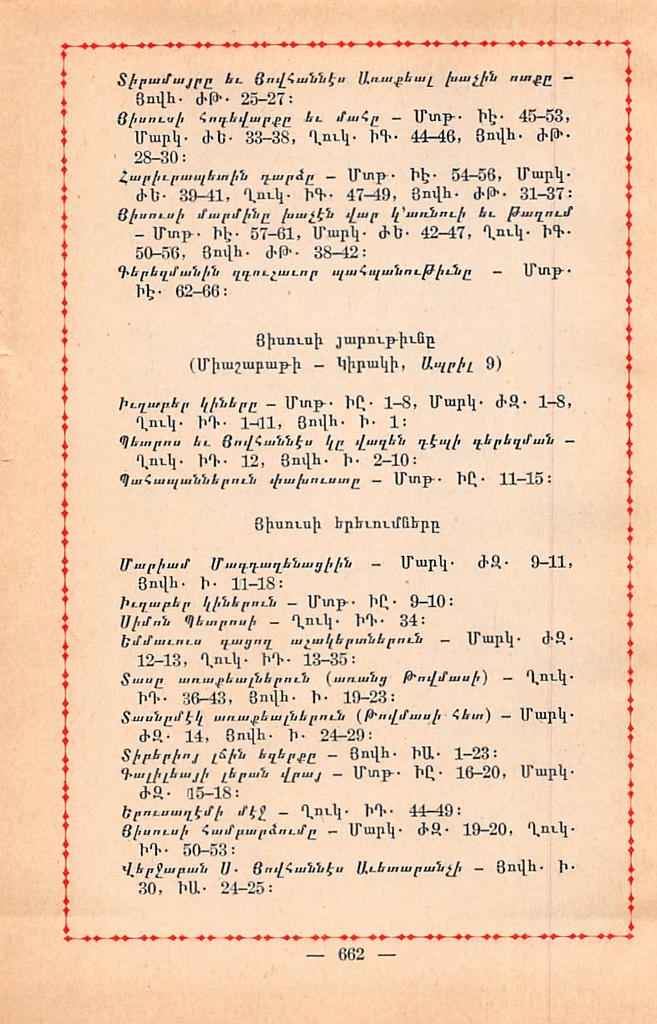 Տիրամայրը եւ Յովհաննէս Առաքեալ խաչին ոտքը –
Յովհ. ԺԹ. 25–27:
Յիսուսի հոգեվարքը եւ մահը – Մտթ. ԻԷ. 45–53,
Մարկ. ԺԵ. 33–38, Ղուկ. ԻԳ. 44–46, Յովհ. ԺԹ.
28–30:
Հարիւրապետին դարձը – Մտթ. ԻԷ. 54–56, Մարկ.
ԺԵ. 39–41, Ղուկ. ԻԳ. 47–49, Յովհ. ԺԹ. 31–37:
Յիսուսի մարմինը խաչէն վար կ'առնուի եւ կը թաղուի
– Մտթ. ԻԷ. 57–61, Մարկ. ԺԵ. 42–47, Ղուկ. ԻԳ.
50–56, Յովհ. ԺԹ. 38–42:
Գերեզմանին զգուշաւոր պահպանութիւնը – Մտթ.
ԻԷ. 62–66:
Յիսուսի յարութիւնը
(Միաշաբաթի – Կիրակի, Ապրիլ 9)
Իւղաբեր կիները – Մտթ. ԻԸ. 1–8, Մարկ. ԺԶ. 1–8,
Ղուկ. ԻԴ. 1–11, Յովհ. Ի. 1:
Պետրոս եւ Յովհաննէս կը վազեն դէպի գերեզման –
Ղուկ. ԻԴ. 12, Յովհ. Ի. 2–10:
Պահապաններուն փախուստը – Մտթ. ԻԸ. 11–15:
Յիսուսի երեւումները
Մարիամ Մագդաղենացիին – Մարկ. ԺԶ. 9–11,
Յովհ. Ի. 11–18:
Իւղաբեր կիներուն – Մտթ. ԻԸ. 9–10:
Սիմոն Պետրոսի – Ղուկ. ԻԴ. 34:
Եմմաւուս գացող աշակերտներուն – Մարկ. ԺԶ.
12–13, Ղուկ. ԻԴ. 13–35:
Տասը առաքեալներուն (առանց Թովմասի) – Ղուկ.
ԻԴ. 36–43, Յովհ. Ի. 19–23:
Տասնըմէկ առաքեալներուն (Թովմասի հետ) – Մարկ.
ԺԶ. 14, Յովհ. Ի. 24–29:
Տիբերիոյ լճին եզերքը – Յովհ. ԻԱ. 1–23:
Գալիլեայի լերան վրայ – Մտթ. ԻԸ. 16–20, Մարկ.
ԺԶ. 15–18:
Երուսաղէմի մէջ – Ղուկ. ԻԴ. 44–49:
Յիսուսի Համբարձումը – Մարկ. ԺԶ. 19–20, Ղուկ.
ԻԴ. 50–53:
Վերջաբան Ս. Յովհաննէս Աւետարանչի – Յովհ. Ի.
30, ԻԱ. 24–25:
— 662 —